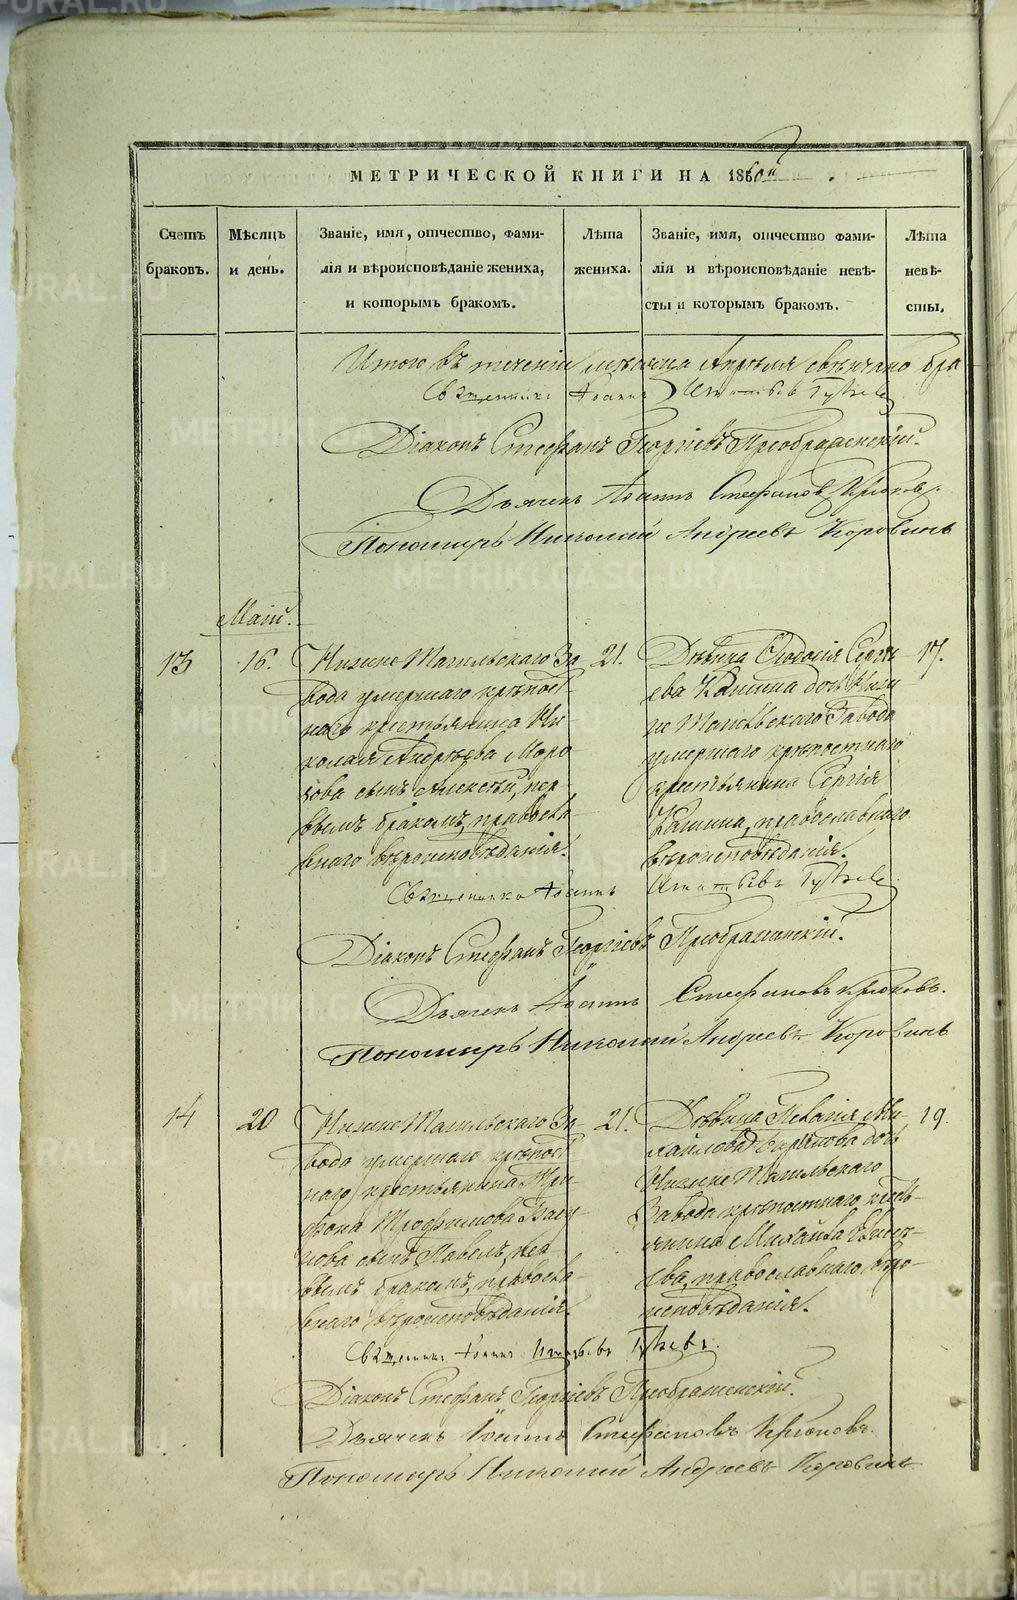 МЕТРИЧЕСКОЙ КНИГИ НА 1860й
Счетъ браковъ.
Мѣсяцъ и день.
Званіе, имя, отчество, фами-
лія и вѣроисповѣданіе жениха,
и которымъ бракомъ.
Лѣта жениха.
Званіе, имя, отчество фами-
лія и вѣроисповѣданіе невѣ-
сты и которымъ бракомъ.
Лѣта невѣ-
сты.
Итого въ теченіи мѣсяца Апрѣля свѣнчано бра
Священникъ Іоаннъ Игнатьевъ
Діаконъ Стефанъ Георгіевъ Преображенскій.
Дьячекъ Іоаннъ Стефановъ Крюковъ.
Пономарь Николай Андреевъ Коровинъ
Маій.
13
16.
Нижне Тагильскаго За-
вода умершаго крѣпост-
наго крестьянина Ни-
колая Андрѣева Моро-
зова сынъ Алексѣй, пер-
вымъ бракомъ, правосла-
внаго вѣроисповѣданія.
21.
Дѣвица Ѳеодосія Сергѣ-
ева дочь Ниж-
не Тагильскаго Завода
умершаго крѣпостнаго
крестьянина Сергія
православнаго
вѣроисповѣданія.
17.
Священникъ Іоаннъ Игнатьевъ
Діаконъ Стефанъ Георгіевъ Преображенскій.
Дьячекъ Іоаннъ Стефановъ Крюковъ.
Пономарь Николай Андреевъ Коровинъ
14
20
Нижне Тагильскаго За-
вода умершаго крѣпост-
наго крестьянина Три-
фона Трофимова
сынъ Павелъ, пер-
вымъ бракомъ, правосла-
внаго вѣроисповѣданія.
21.
Дѣвица Пелагія Ми-
хайлова дочь
Нижне Тагильскаго
Завода крѣпостнаго кресть-
янина Михаила
православнаго вѣро-
исповѣданія.
19.
Священникъ Іоаннъ Игнатьевъ
Діаконъ Стефанъ Георгіевъ Преображенскій.
Дьячекъ Іоаннъ Стефановъ Крюковъ.
Пономарь Николай Андреевъ Коровинъ
METRIKI.GASO-URAL.RU